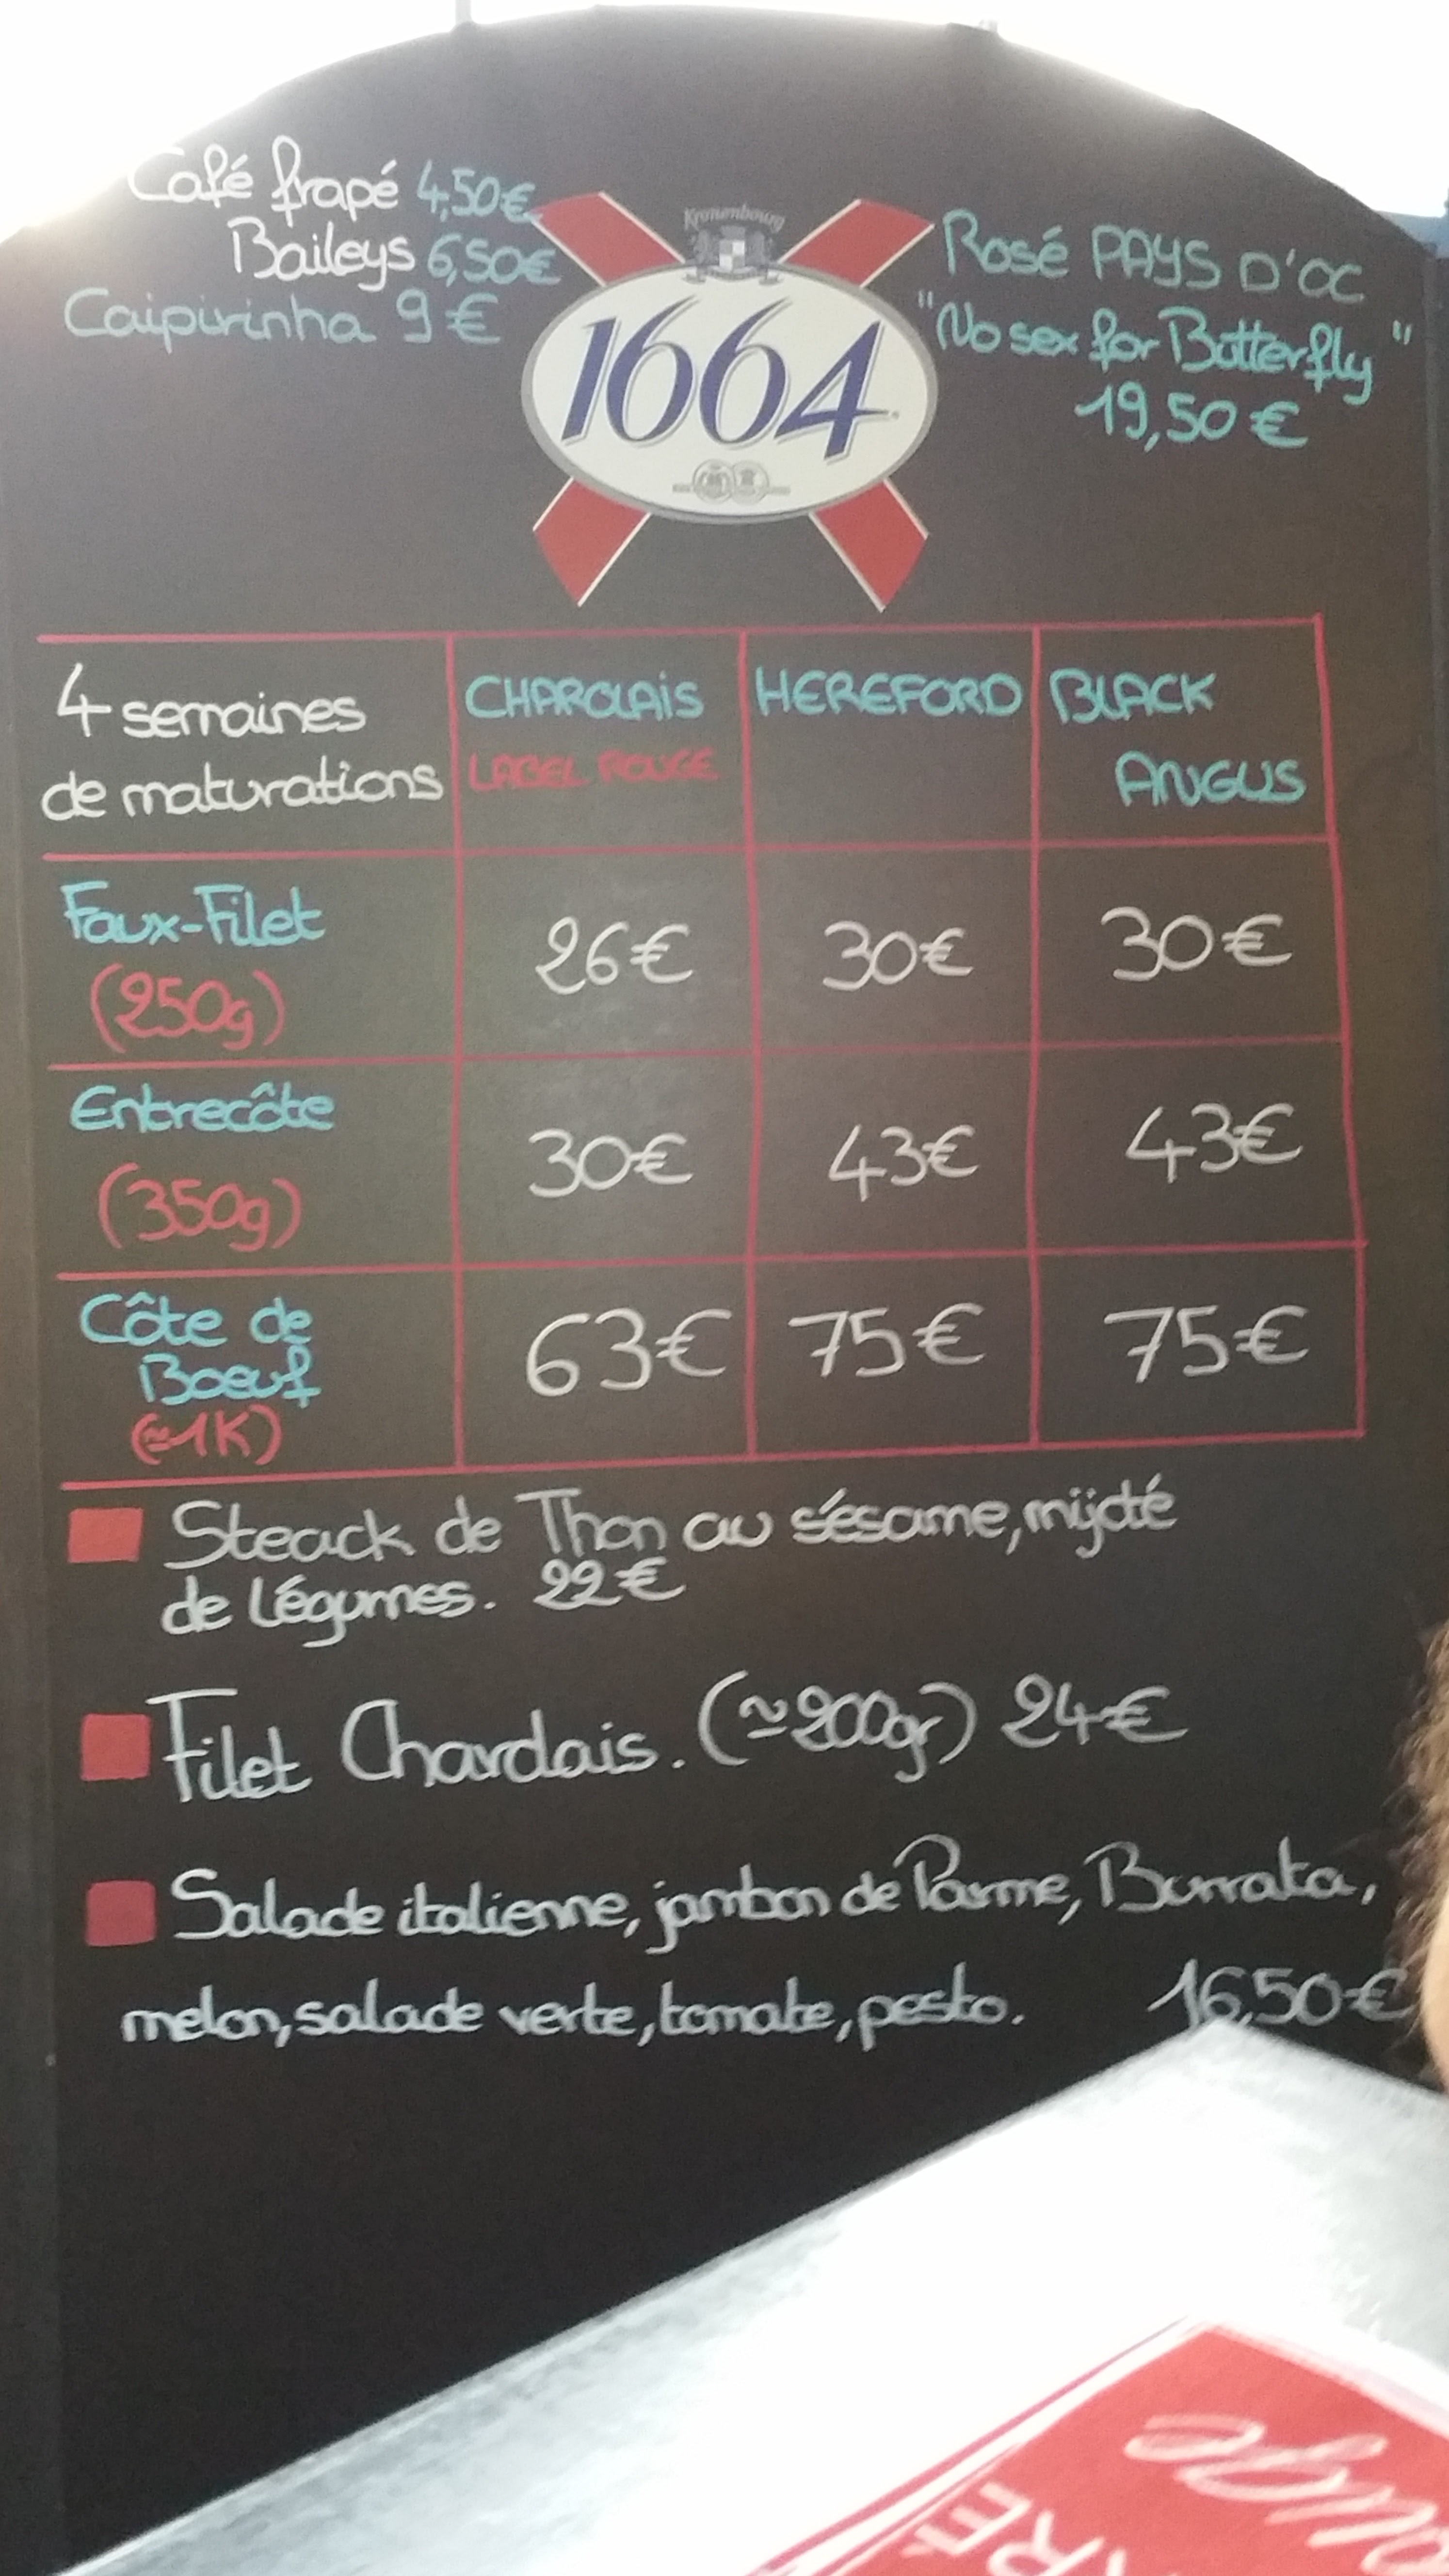 Café frapé 4,50€
Baileys 6,50€
Caipirinha 9€
Kronenbourg
1664
Rosé PAYS D'OC
"No sex for Butterfly"
19,50€
4 semaines
de maturations
CHAROLAIS
LABEL ROUGE
HEREFORD
BLACK
ANGUS
Faux-Filet
(250g)
26€
30€
30€
Entrecôte
(350g)
30€
43€
43€
Côte de
Boeuf
(≃1K)
63€
75€
75€
Steack de Thon au sésame, mijoté
de légumes. 22€
Filet Charolais. (≃200gr) 24€
Salade italienne, jambon de Parme, Burrata,
melon, salade verte, tomate, pesto. 16,50€